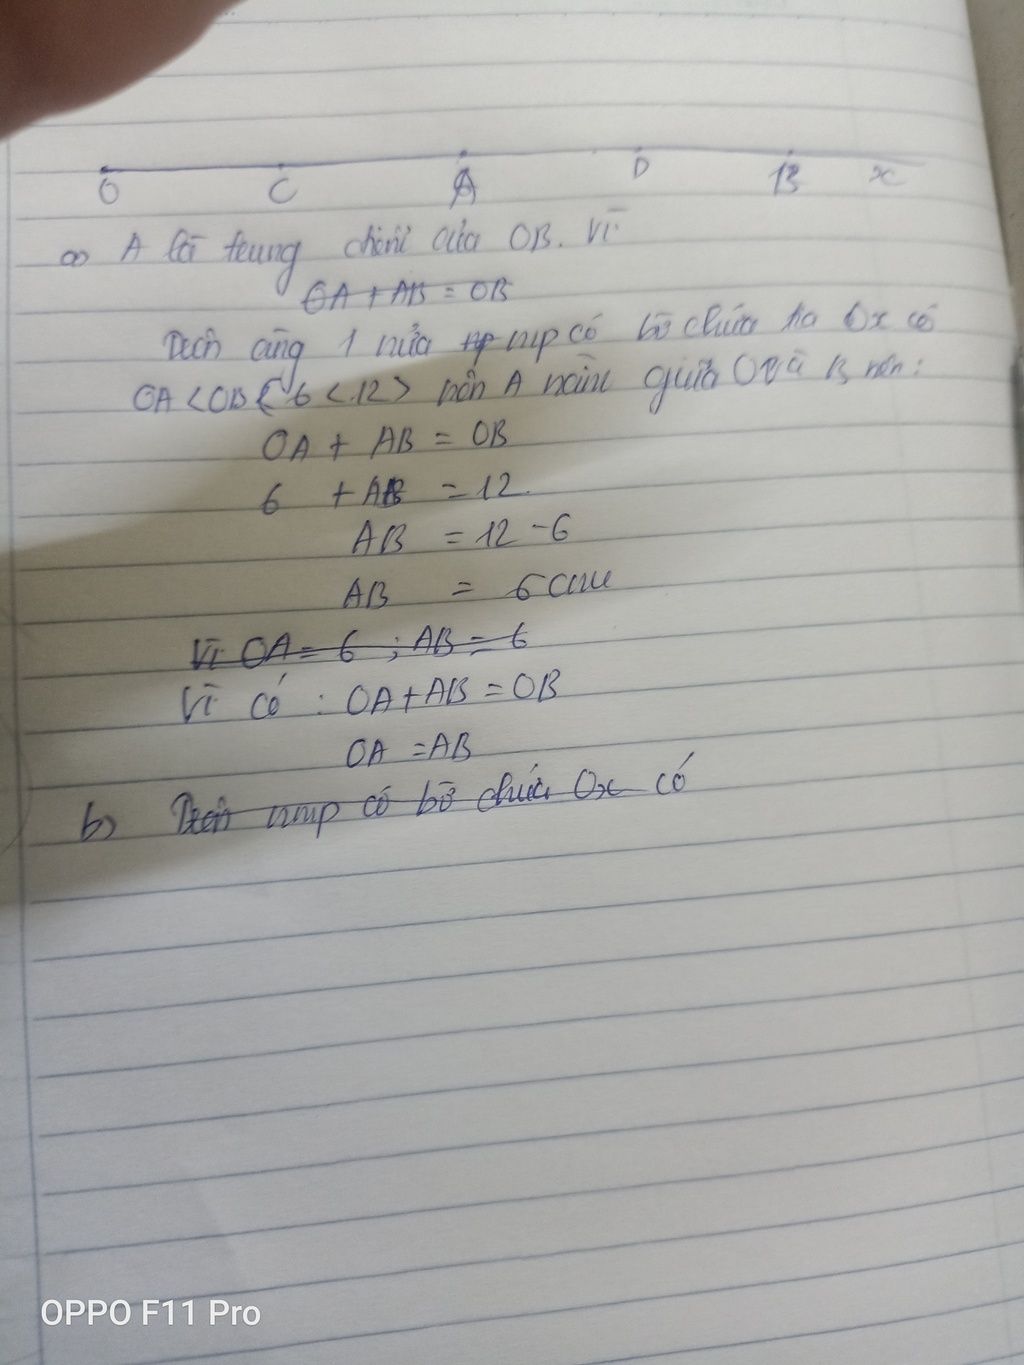 O C A D B x
a) A là trung điểm của OB. Vì
OA + AB = OB
Trên cùng 1 nửa mp có bờ chứa tia Ox có
OA < OB (6 < 12) nên A nằm giữa O và B nên:
OA + AB = OB
6 + AB = 12.
AB = 12 - 6
AB = 6 cm
Vì OA = 6 ; AB = 6
Vì có : OA + AB = OB
OA = AB
b) Trên nmp có bờ chứa Ox có
OPPO F11 Pro